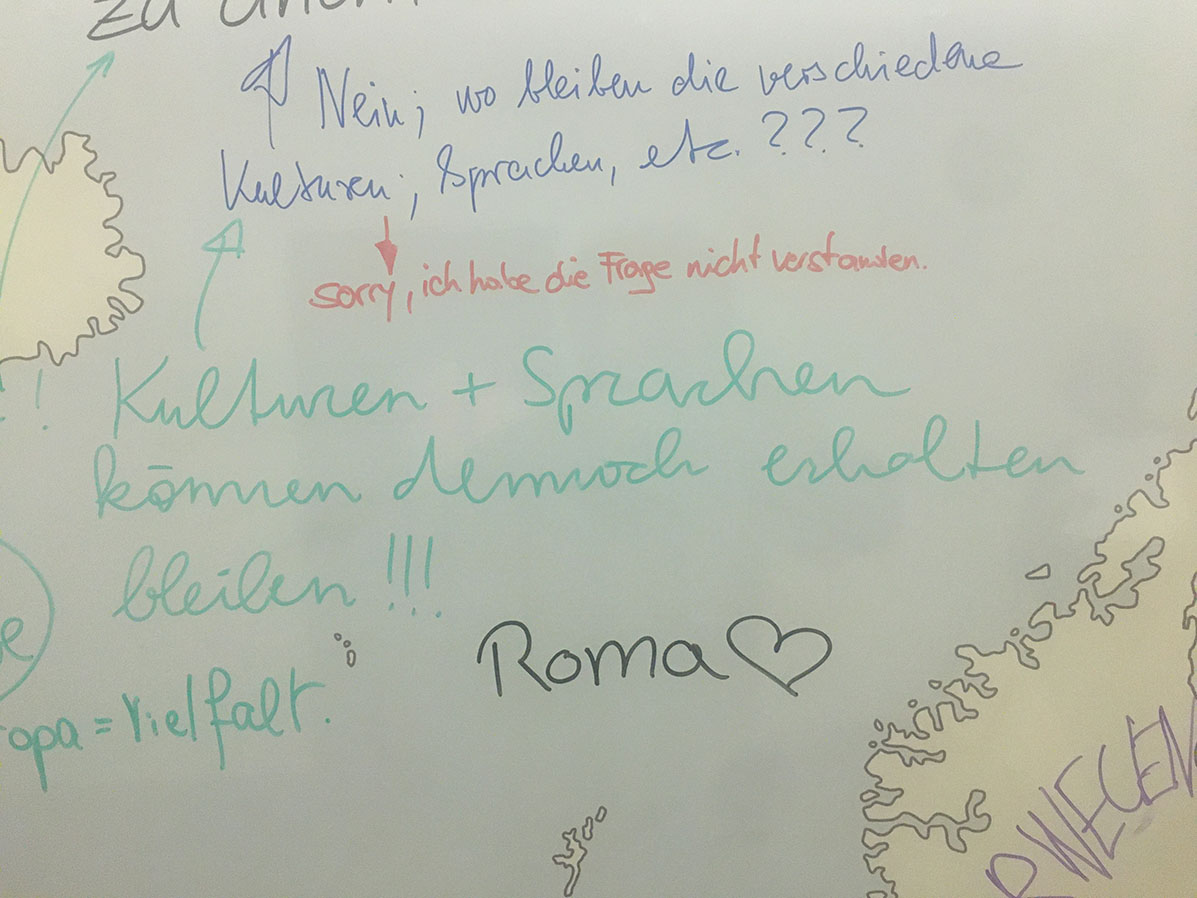 zu
Nein; wo bleiben die verschiedene
Kulturen, Sprachen, etc. ???
sorry, ich habe die Frage nicht verstanden.
! Kulturen + Sprachen
können dennoch erhalten
bleiben !!!
Roma
opa = Vielfalt.
RWEGEN